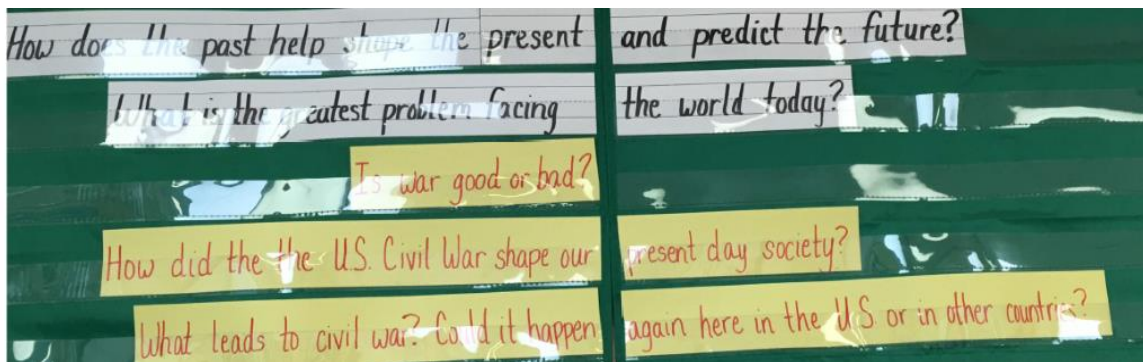 How does the past help shape the present and predict the future?
What is the greatest problem facing the world today?
Is war good or bad?
How did the the U.S. Civil War shape our present day society?
What leads to civil war? Could it happen again here in the U.S. or in other countries?